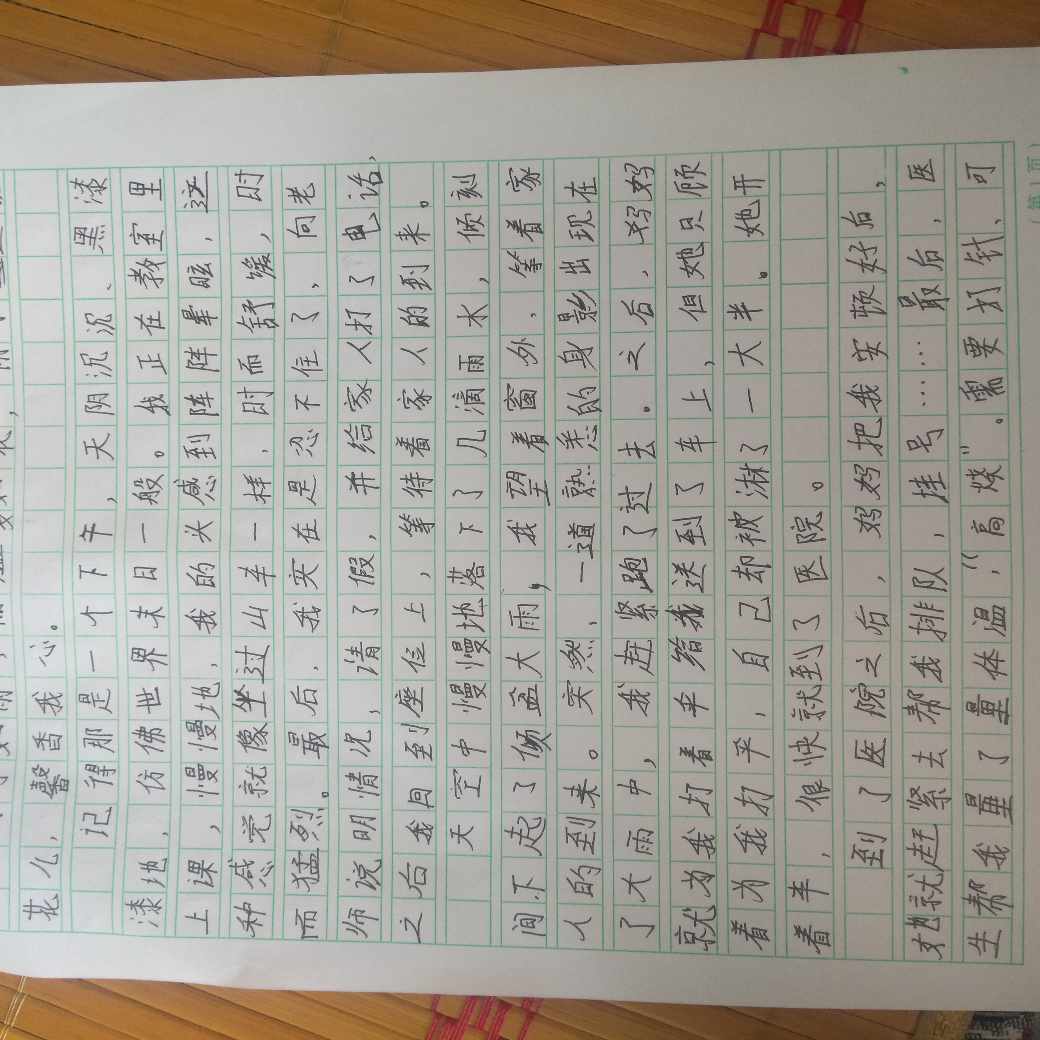 花儿，馨香我心。
记得那是一个下午，天阴沉沉、黑漆
漆地，仿佛世界末日一般。我正在教室里
上课，慢慢地，我的头感到阵阵晕眩，这
种感觉就像坐过山车一样，时而舒缓，时
而猛烈。最后，我实在是忍不住了，向老
师说明情况，请了假，并给家人打了电话，
之后我回到座位上，等待着家人的到来。
天空中慢慢地落下了几滴雨水，倾刻
间，下起了倾盆大雨，我望着窗外，等着家
人的到来。突然，一道熟悉的身影出现在
了大雨中，我赶紧跑了过去。之后，妈妈
就为我打着伞给我送到了车上，但她只顾
着为我打伞，自己却被淋了一大半。她开
着车，很快就到了医院。
到了医院之后，妈妈把我安顿好后，
她就赶紧去帮我排队，挂号……最后，医
生帮我量了量体温，“高烧”。需要打针，可